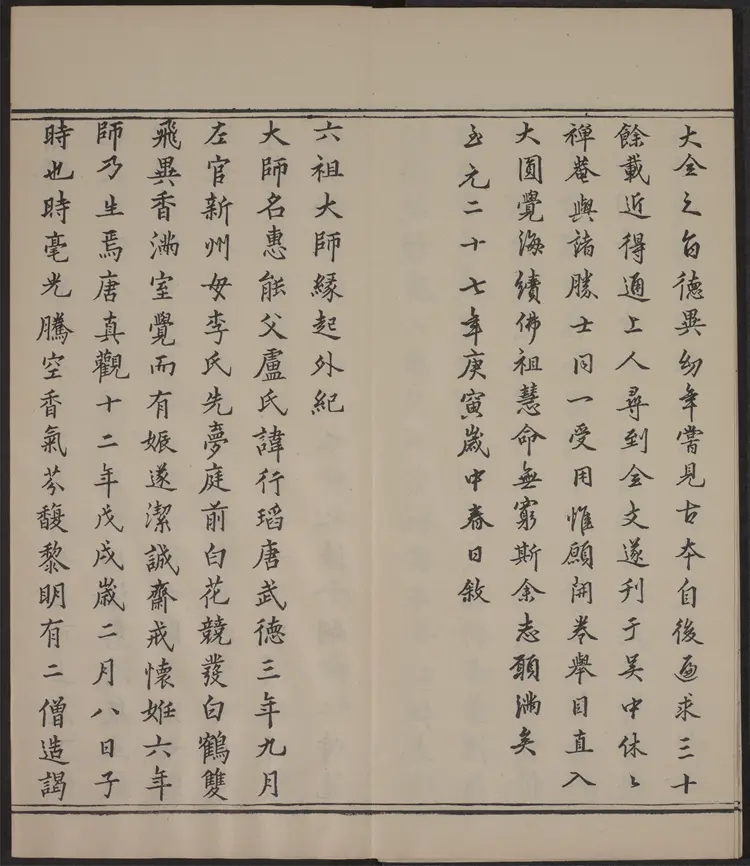 大全之旨德異幼年嘗見古本自後遍求三十
餘載近得通上人尋到全文遂刊于吳中休〻
禪菴與諸勝士同一受用惟願開卷舉目直入
大圓覺海續佛祖慧命無窮斯余志願滿矣
至元二十七年庚寅歲中春日敘
六祖大師緣起外紀
大師名惠能父盧氏諱行瑫唐武德三年九月
左官新州母李氏先夢庭前白花競發白鶴雙
飛異香滿室覺而有娠遂潔誠齋戒懷姙六年
師乃生焉唐真觀十二年戊戌歲二月八日子
時也時毫光騰空香氣芬馥黎明有二僧造謁